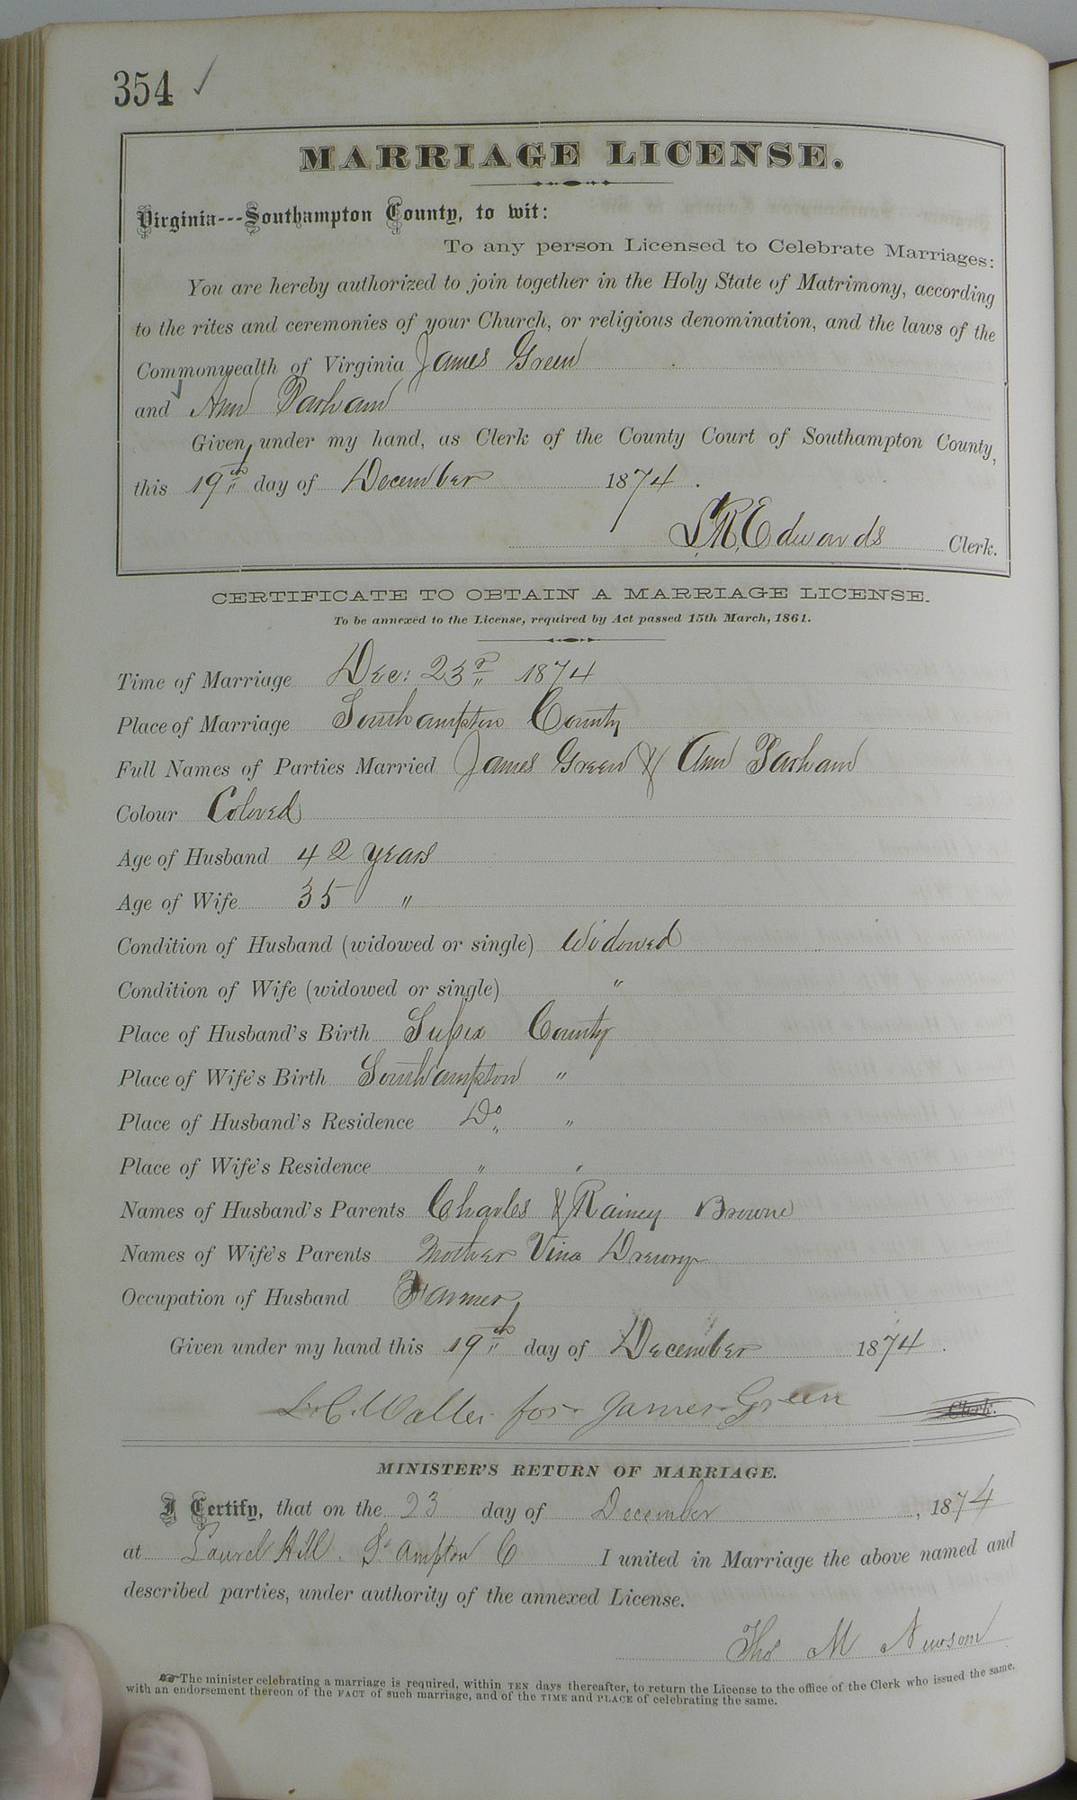 354 ✓
MARRIAGE LICENSE.
Virginia---Southampton County, to wit:
To any person Licensed to Celebrate Marriages:
You are hereby authorized to join together in the Holy State of Matrimony, according
to the rites and ceremonies of your Church, or religious denomination, and the laws of the
Commonwealth of Virginia James Green
and Ann Parham
Given under my hand, as Clerk of the County Court of Southampton County,
this 19th day of December 1874.
L.R. Edwards Clerk.
CERTIFICATE TO OBTAIN A MARRIAGE LICENSE.
To be annexed to the License, required by Act passed 15th March, 1861.
Time of Marriage Dec: 23rd 1874
Place of Marriage Southampton County
Full Names of Parties Married James Green & Ann Parham
Colour Colored
Age of Husband 42 years
Age of Wife 35 "
Condition of Husband (widowed or single) Widowed
Condition of Wife (widowed or single) "
Place of Husband's Birth Sussex County
Place of Wife's Birth Southampton "
Place of Husband's Residence Do "
Place of Wife's Residence " "
Names of Husband's Parents Charles & Rainey Browne
Names of Wife's Parents Mother Vina Drewry
Occupation of Husband Farmer
Given under my hand this 19th day of December 1874.
for James Green Clerk.
MINISTER'S RETURN OF MARRIAGE.
I Certify, that on the 23 day of December, 1874
at Laurel Hill. So ampton C I united in Marriage the above named and
described parties, under authority of the annexed License.
Thos M Newsom
The minister celebrating a marriage is required, within TEN days thereafter, to return the License to the office of the Clerk who issued the same,
with an endorsement thereon of the FACT of such marriage, and of the TIME and PLACE of celebrating the same.